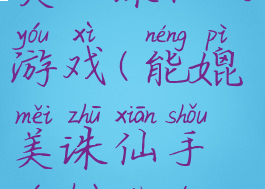 yóu xì néng pì
游戏(能媲
měi zhū xiān shǒu
美诛仙手